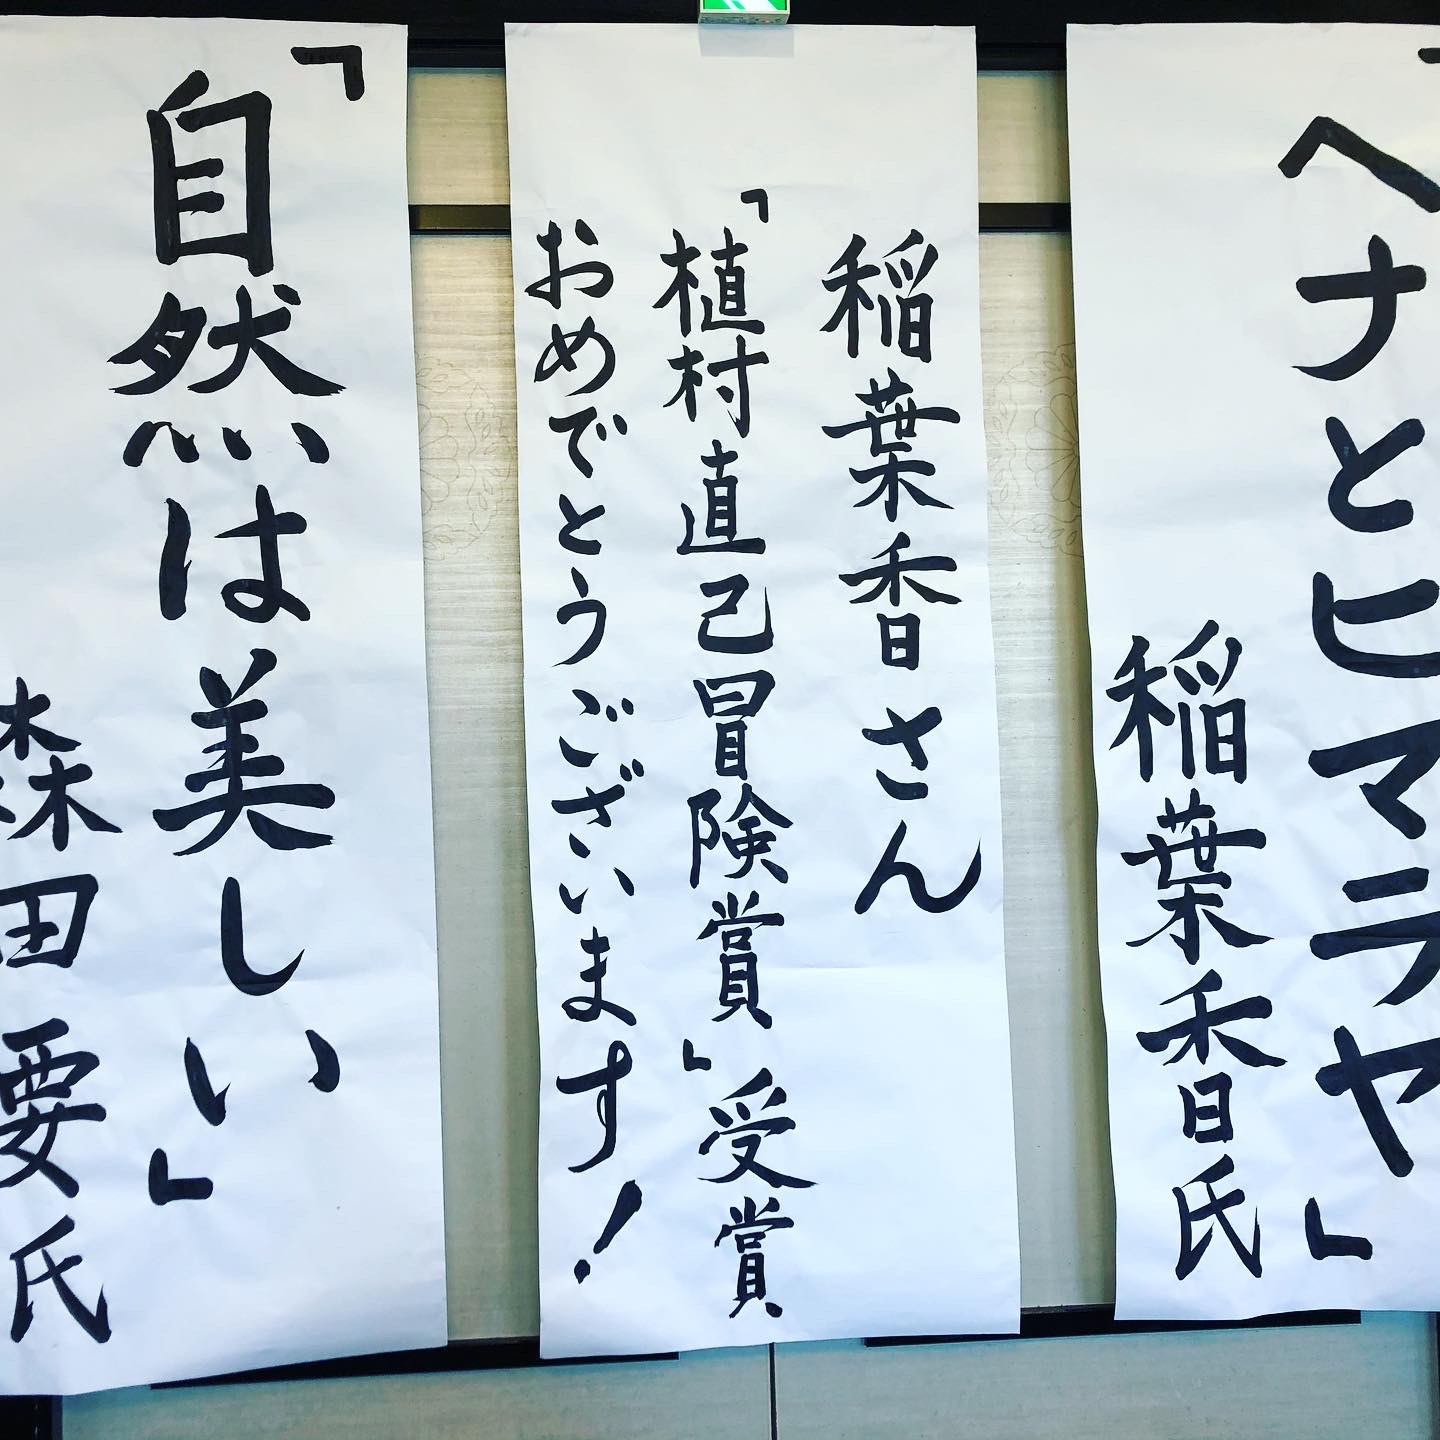 「ヘナとヒマラヤ」
稲葉香氏
稲葉香さん
「植村直己冒険賞」受賞
おめでとうございます！
「自然は美しい」
森田要氏